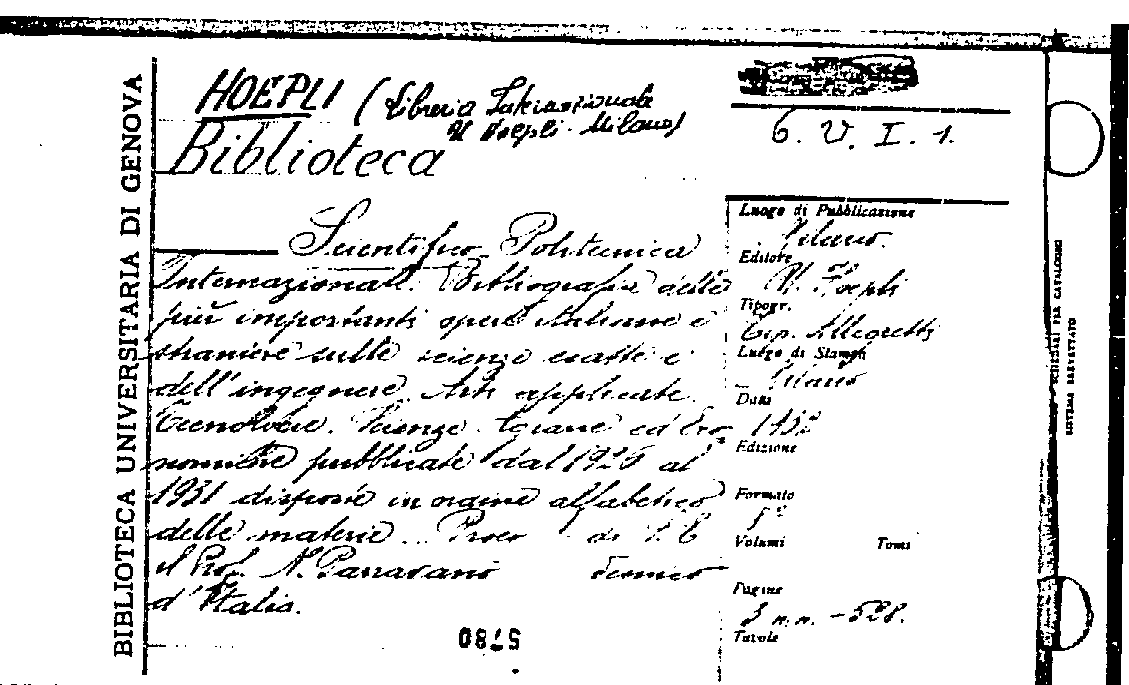 BIBLIOTECA UNIVERSITARIA DI GENOVA
HOEPLI (Libreria Internazionale
U. Hoepli - Milano)
Biblioteca
6. V. I. 1.
Scientifico Politecnica
Internazionale. Bibliografia delle
più importanti opere italiane e
straniere sulle scienze esatte e
dell'ingegnere. Arti applicate.
Tecnologie. Scienze Agrarie ed Eco-
nomiche pubblicate dal 1926 al
1931 disposte in ordine alfabetico
delle materie. di S. E.
il Prof. N. Parravano
d'Italia.
5780
Luogo di Pubblicazione
Milano.
Editore
U. Hoepli
Tipogr.
Tip. Allegretti
Luogo di Stampa
Milano
Data
Edizione
Formato
8°
Volumi Tomi
Pagine
3 n.n. - 528.
Tavole
SCHEDARI PER CATALOGHI
SISTEMA